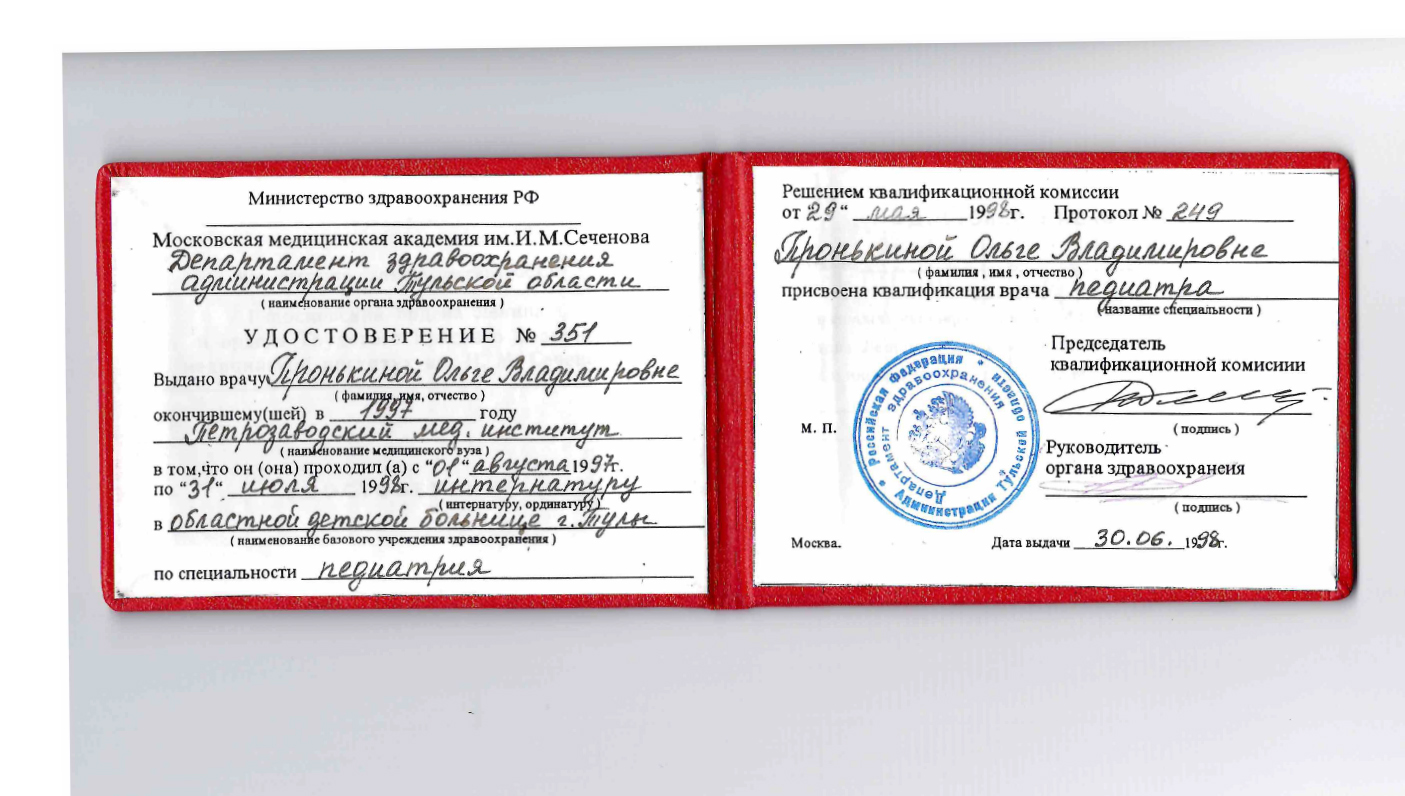 Министерство здравоохранения РФ
Московская медицинская академия им.И.М.Сеченова
Департамент здравоохранения
администрации Тульской области
( наименование органа здравоохранения )
УДОСТОВЕРЕНИЕ № 351
Выдано врачу Пронькиной Ольге Владимировне
( фамилия, имя, отчество )
окончившему(шей) в 1997 году
Петрозаводский мед. институт
( наименование медицинского вуза )
в том,что он (она) проходил (а) с "01" августа 1997г.
по "31" июля 1998г. интернатуру
( интернатуру, ординатуру )
в областной детской больнице г. Тулы
( наименование базового учреждения здравоохранения )
по специальности педиатрия
Решением квалификационной комиссии
от 29" мая 1998г. Протокол № 249
Пронькиной Ольге Владимировне
( фамилия , имя , отчество )
присвоена квалификация врача педиатра
(название специальности )
Председатель
квалификационной комисиии
( подпись )
М. П.
Руководитель
органа здравоохранеия
( подпись )
Москва. Дата выдачи 30.06. 1998г.
Российская Федерация
Администрация Тульской области
Департамент здравоохранения